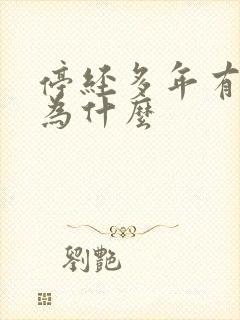 停經多年有
為什麼
劉艷